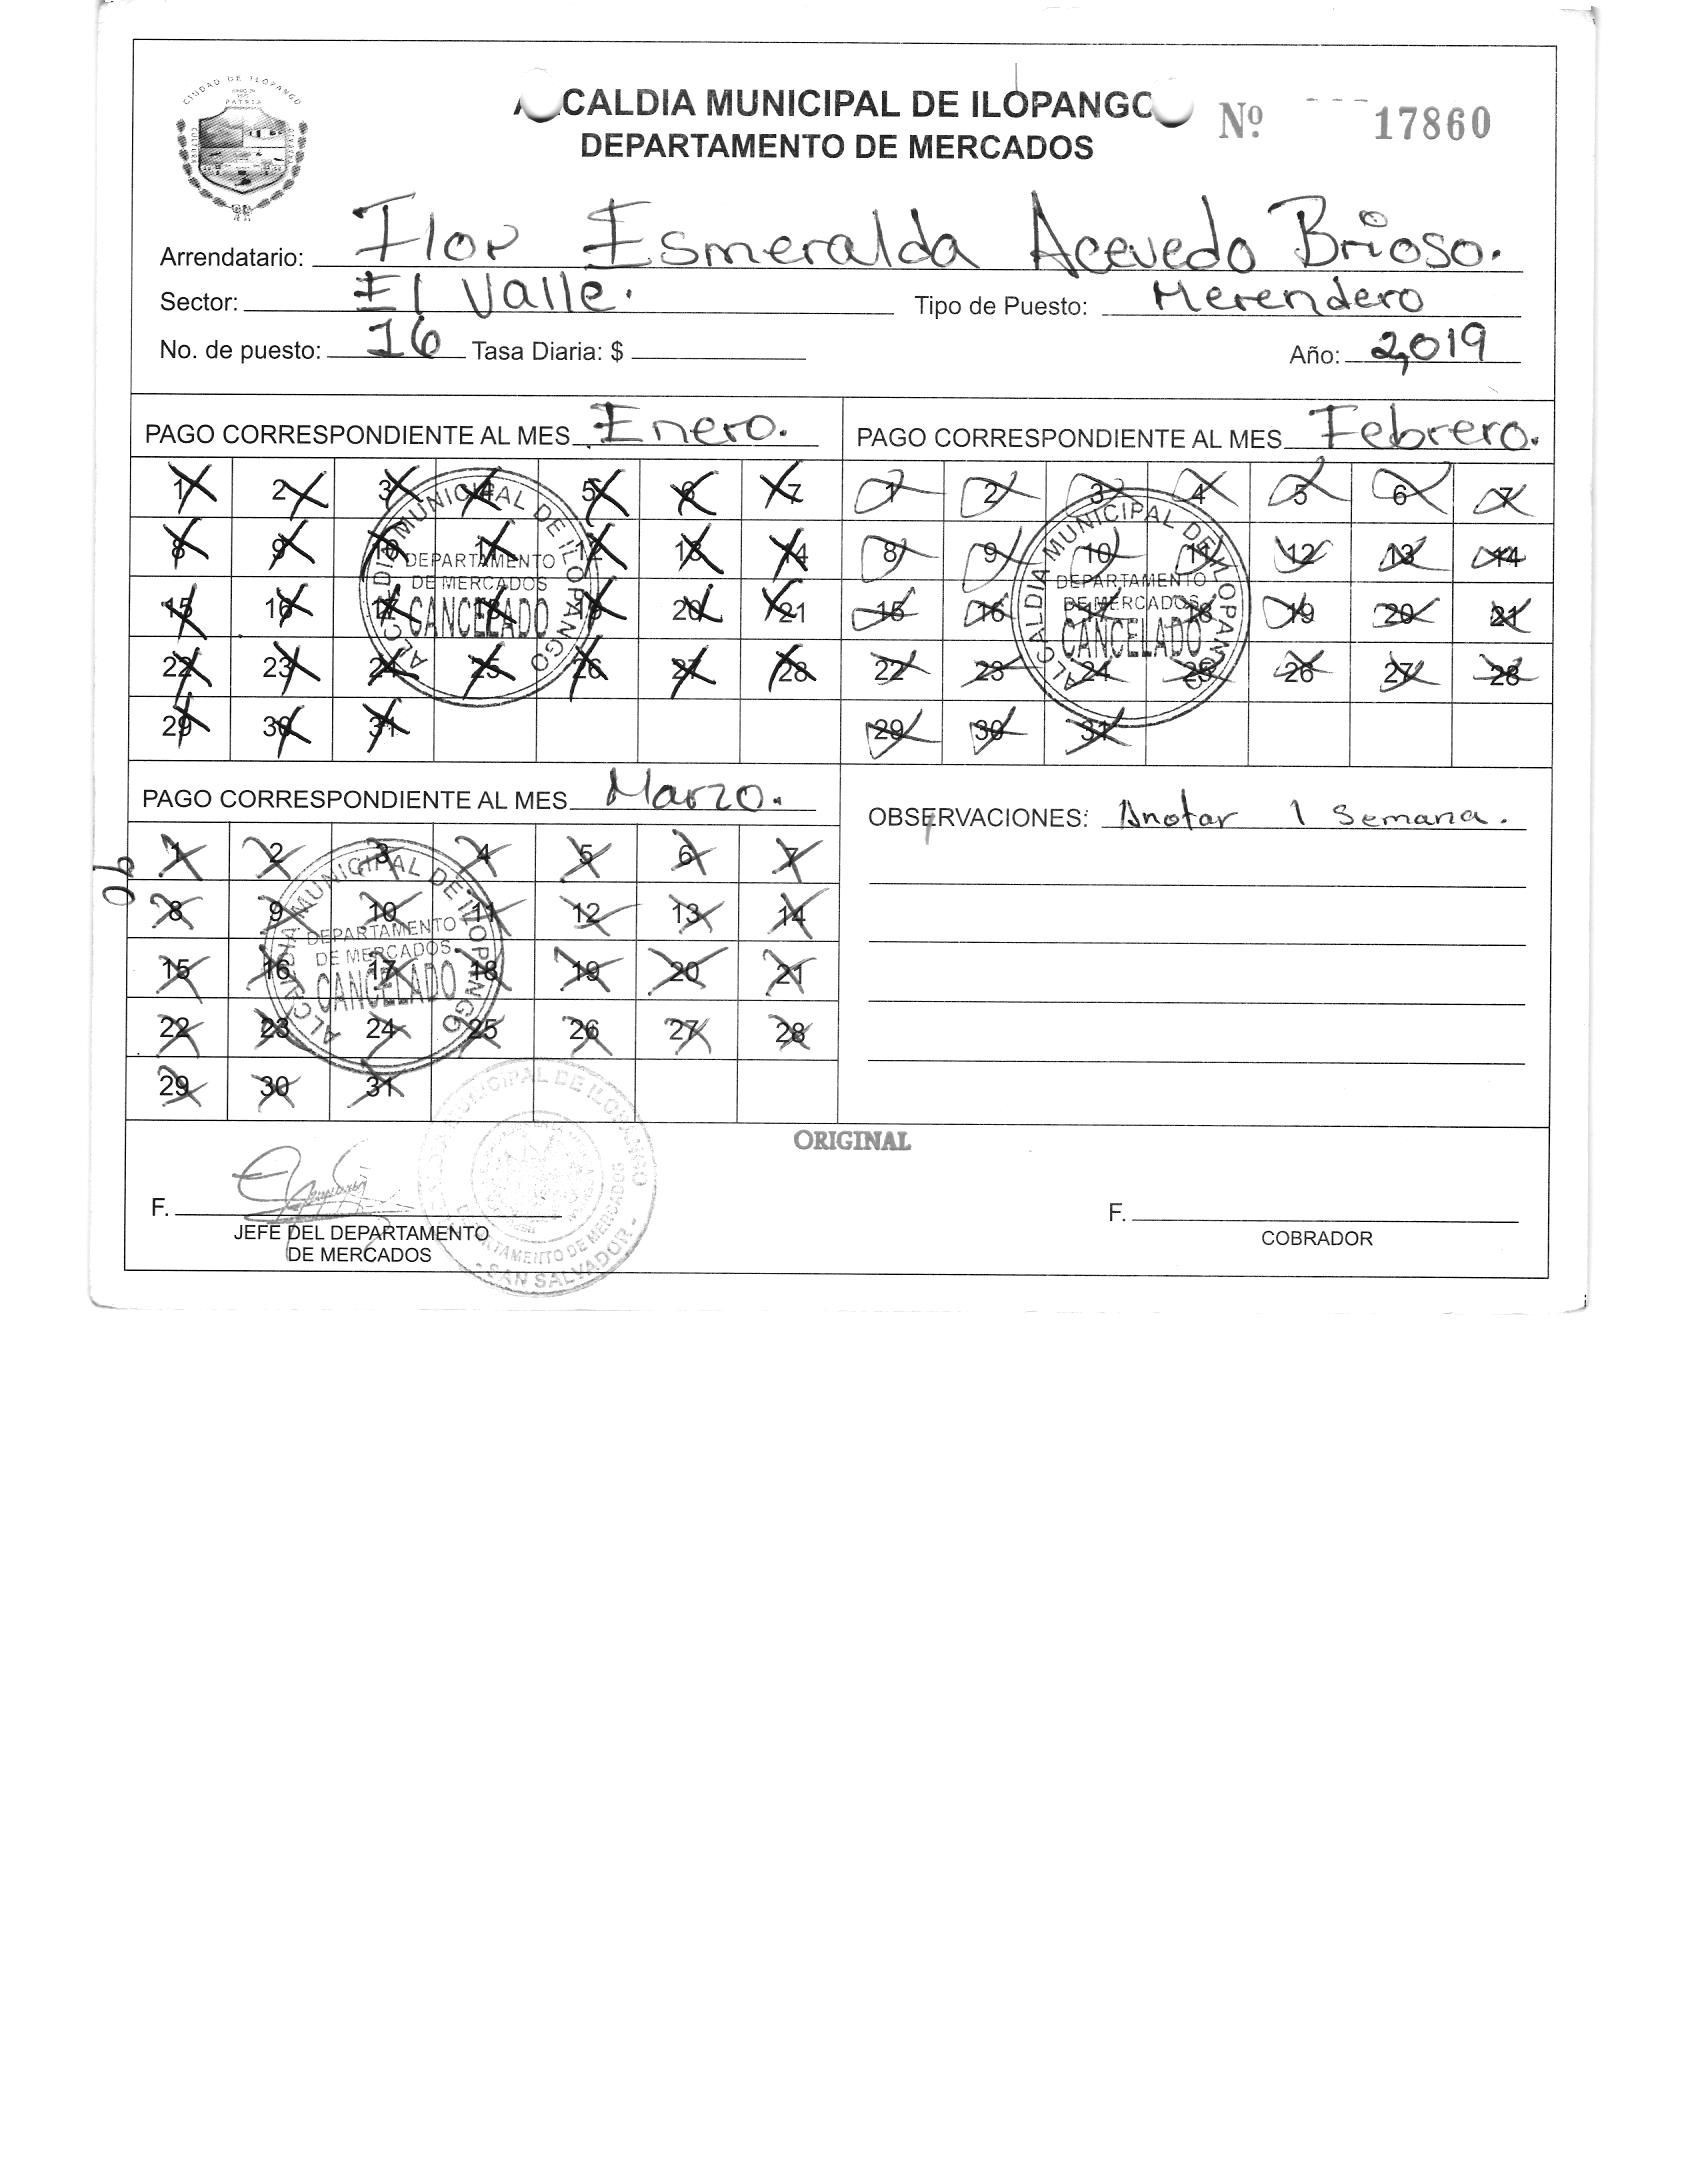 CIUDAD DE ILOPANGO
PATRIA
CULTURA
ALCALDIA MUNICIPAL DE ILOPANGO
DEPARTAMENTO DE MERCADOS
Nº 17860
Arrendatario: Flor Esmeralda Acevedo Brioso.
Sector: El Valle.
Tipo de Puesto: Merendero
No. de puesto: 16 Tasa Diaria: $
Año: 2,019
PAGO CORRESPONDIENTE AL MES Enero.
1 2 3 4 5 6 7
8 9 10 11 12 13 14
15 16 17 18 19 20 21
22 23 24 25 26 27 28
29 30 31
ALCALDIA MUNICIPAL DE ILOPANGO
DEPARTAMENTO
DE MERCADOS
CANCELADO
PAGO CORRESPONDIENTE AL MES Febrero.
1 2 3 4 5 6 7
8 9 10 11 12 13 14
15 16 17 18 19 20 21
22 23 24 25 26 27 28
29 30 31
ALCALDIA MUNICIPAL DE ILOPANGO
DEPARTAMENTO
DE MERCADOS
CANCELADO
PAGO CORRESPONDIENTE AL MES Marzo.
1 2 3 4 5 6 7
8 9 10 11 12 13 14
15 16 17 18 19 20 21
22 23 24 25 26 27 28
29 30 31
ALCALDIA MUNICIPAL DE ILOPANGO
DEPARTAMENTO
DE MERCADOS
CANCELADO
90
OBSERVACIONES: Anotar 1 Semana.
ORIGINAL
F.
JEFE DEL DEPARTAMENTO
DE MERCADOS
MUNICIPAL DE ILOPANGO
DEPARTAMENTO DE MERCADOS
- SAN SALVADOR -
F.
COBRADOR